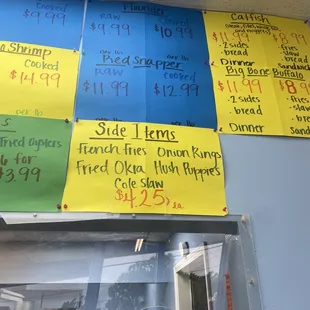 Flounder
Raw Cooked
$9.99 $10.99
per lb
Red Snapper
Raw Cooked
$11.99 $12.99
per lb
Shrimp
Cooked
$14.99
per lb
Fried Oysters
6 for
$3.99
Side Items
French Fries Onion Rings
Fried Okra Hush Puppies
Cole Slaw
$4.25 ea
Catfish
$11.99
2 sides
bread
Dinner
fries
slaw
bread
Sandwich
Big Bone Buffalo
$11.99 $8.99
2 sides
bread
Dinner
fries
slaw
bread
Sandwich